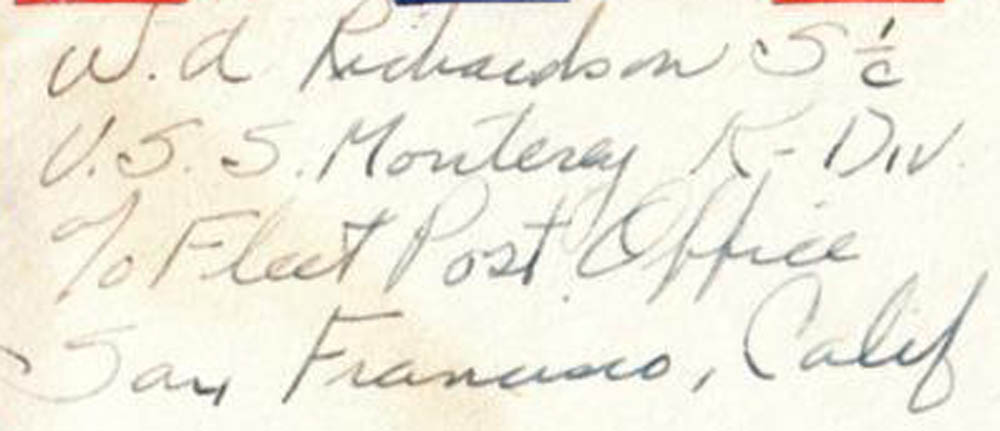 W. A Richardson S 1/c
U.S.S. Monterey R-Div.
℅ Fleet Post Office
San Francisco, Calif